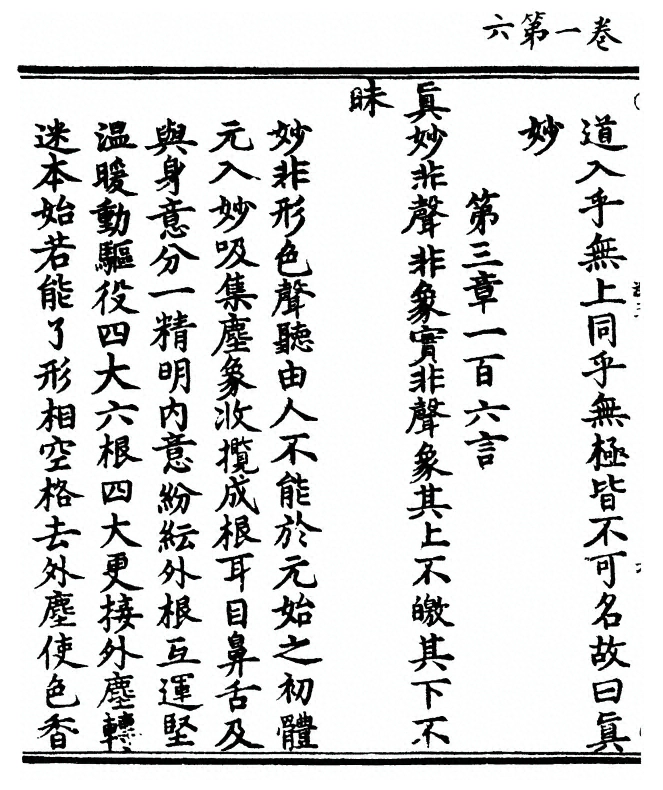 六第一卷
道入乎無上同乎無極皆不可名故曰眞
妙
第三章一百六言
眞妙非聲非象實非聲象其上不皦其下不
昧
妙非形色聲聽由人不能於元始之初體
元入妙吸集塵象收攬成根耳目鼻舌及
與身意分一精明内意紛紜外根互運堅
温暖動驅役四大六根四大更接外塵轉
迷本始若能了形相空格去外塵使色香